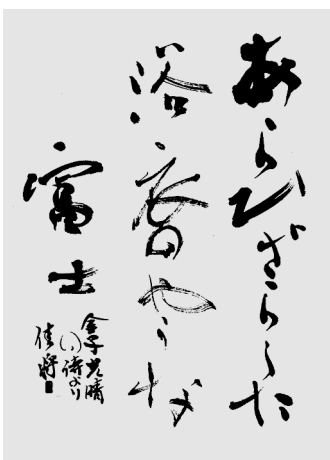 あらひざらした
浴衣のやうな
富士
金子光晴
の詩より
佳将